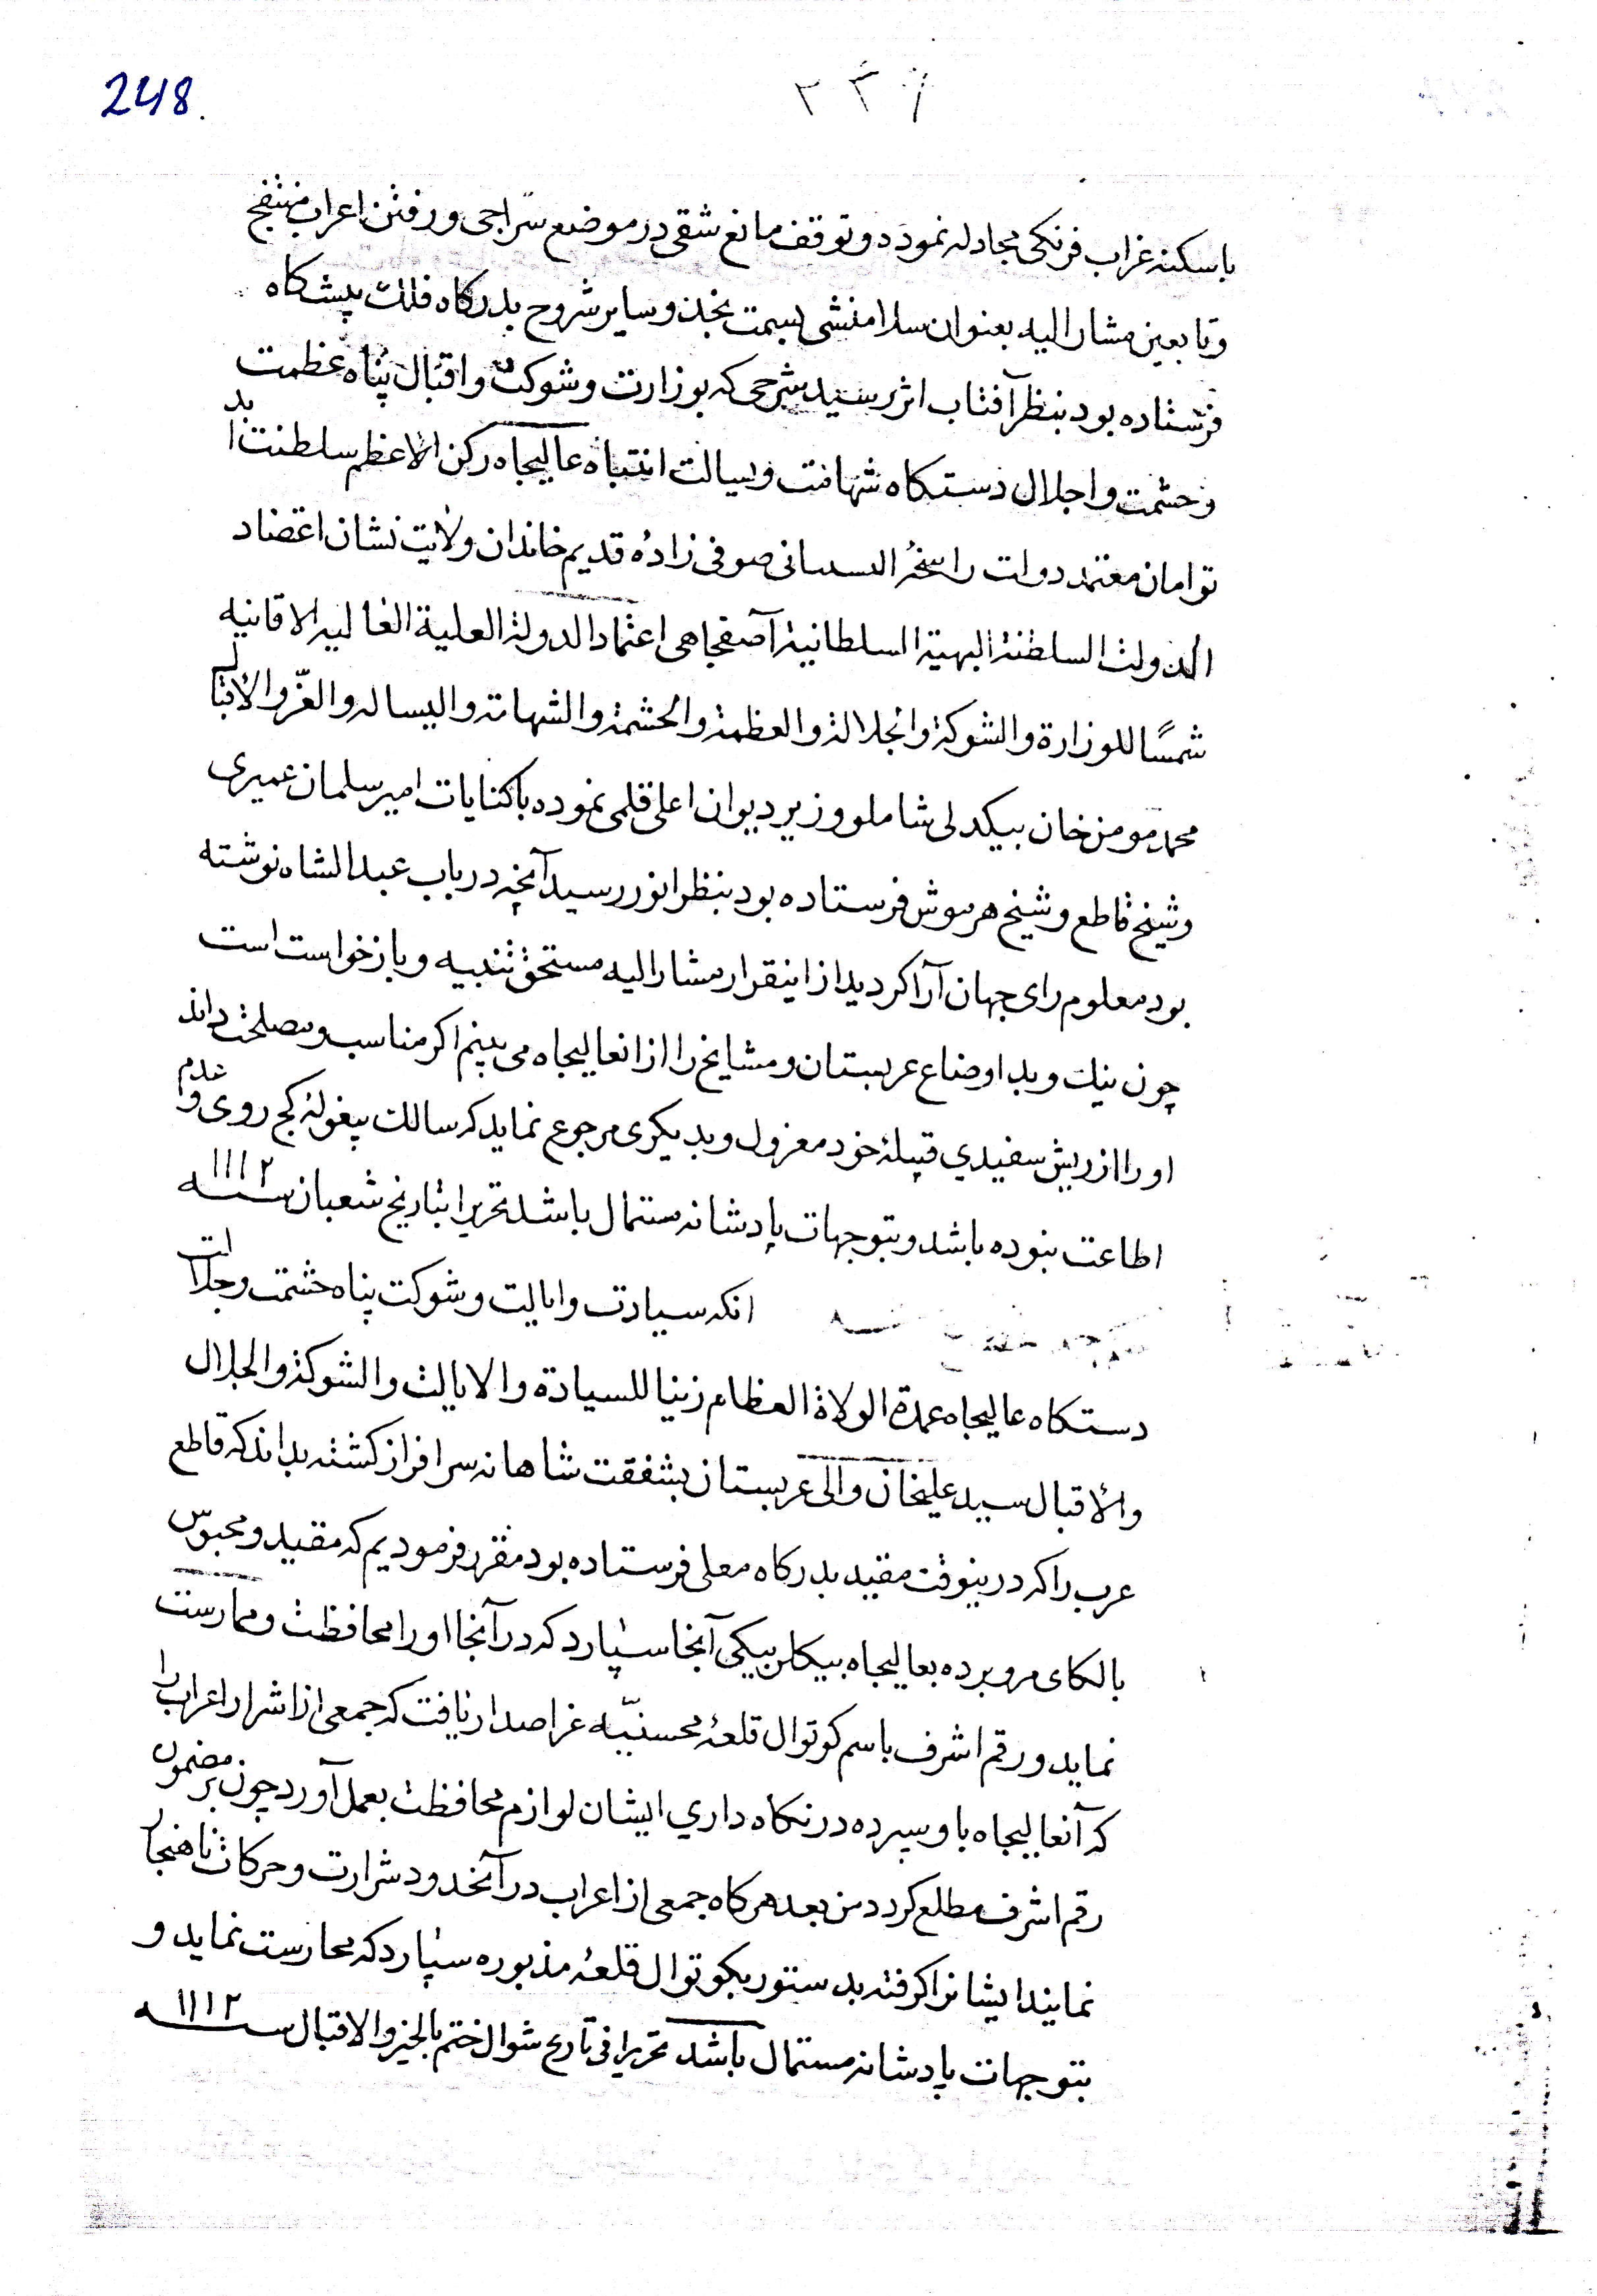 248.
۲۳۶
باسکنه غراب فرنکی مجادله نمودد و توقف مانع شقی در موضع سراجی و رفتن اعراب منتفج
و تابعین مشارالیه بعنوان سلامنشی بسمت نجد و سایر شروح بدرکاه فلک پیشکاه
فرستاده بود بنظر آفتاب اثر رسید شرحی که بوزارت و شوکت و اقبال پناه عظمت
و حشمت و اجلال دستکاه شهامت و بسالت انتباه عالیجاه رکن الاعظم سلطنت ابد
توامان معتمد دولت راسخة البنیانی صوفی زاده قدیم خاندان ولایت نشان اعتضاد
الدولت السلطنة البهیة السلطانیة آصفجاهی اعتماد الدولة العلیة العالیه الاقانیه
شمسًا للوزارة والشوکة والجلالة والعظمة والحشمة والشهامة والبساله والعزّ والاقبال
محمد مومن خان بیکدلی شاملو وزیر دیوان اعلی قلمی نموده با کتابات امیر سلمان عمیری
و شیخ قاطع و شیخ هرموش فرستاده بود بنظر انور رسید آنچه در باب عبدالشاه نوشته
بود معلوم رای جهان آرا کردید از اینقرار مشارالیه مستحق تنبیه و بازخواست است
چون نیک و بد اوضاع عربستان و مشایخ را از انعالیجاه می بینم اکر مناسب و مصلحت داند
او را از ریش سفیدی قبیلهٔ خود معزول و بدیکری مرجوع نماید که سالک بیغولهٔ کج روی و عدم
اطاعت نبوده باشد و بتوجهات پادشانه مستمال باشد تحریرا بتاریخ شعبان سنه ۱۱۱۲
انکه سیادت و ایالت و شوکت پناه حشمت و جلالت
دستکاه عالیجاه عمدة الولاة العظام زینا للسیادة والایالت والشوکة والجلال
والاقبال سید علیخان والی عربستان بشفقت شاهانه سرافراز کشته بداند که قاطع
عرب را که در ینوقت مقید بدرکاه معلی فرستاده بود مقرر فرمودیم که مقید و محبوس
بالکای مرو برده بعالیجاه بیکلربیکی آنجا سپارد که در آنجا او را محافظت و ممارست
نماید و رقم اشرف باسم کوتوال قلعهٔ محسنیّه عز اصدار یافت که جمعی از اشرار اعراب را
که آنعالیجاه باو سپرده در نکاه داری ایشان لوازم محافظت بعمل آورد چون بر مضمون
رقم اشرف مطلع کردد من بعد هرکاه جمعی از اعراب در آنحدود شرارت و حرکات ناهنجار
نمایند ایشانرا کرفته بدستور بکوتوال قلعهٔ مذبوره سپارد که محارست نماید و
بتوجهات پادشانه مستمال باشد تحریرا فی تاریخ شوال ختم بالخیر والاقبال سنه ۱۱۱۲